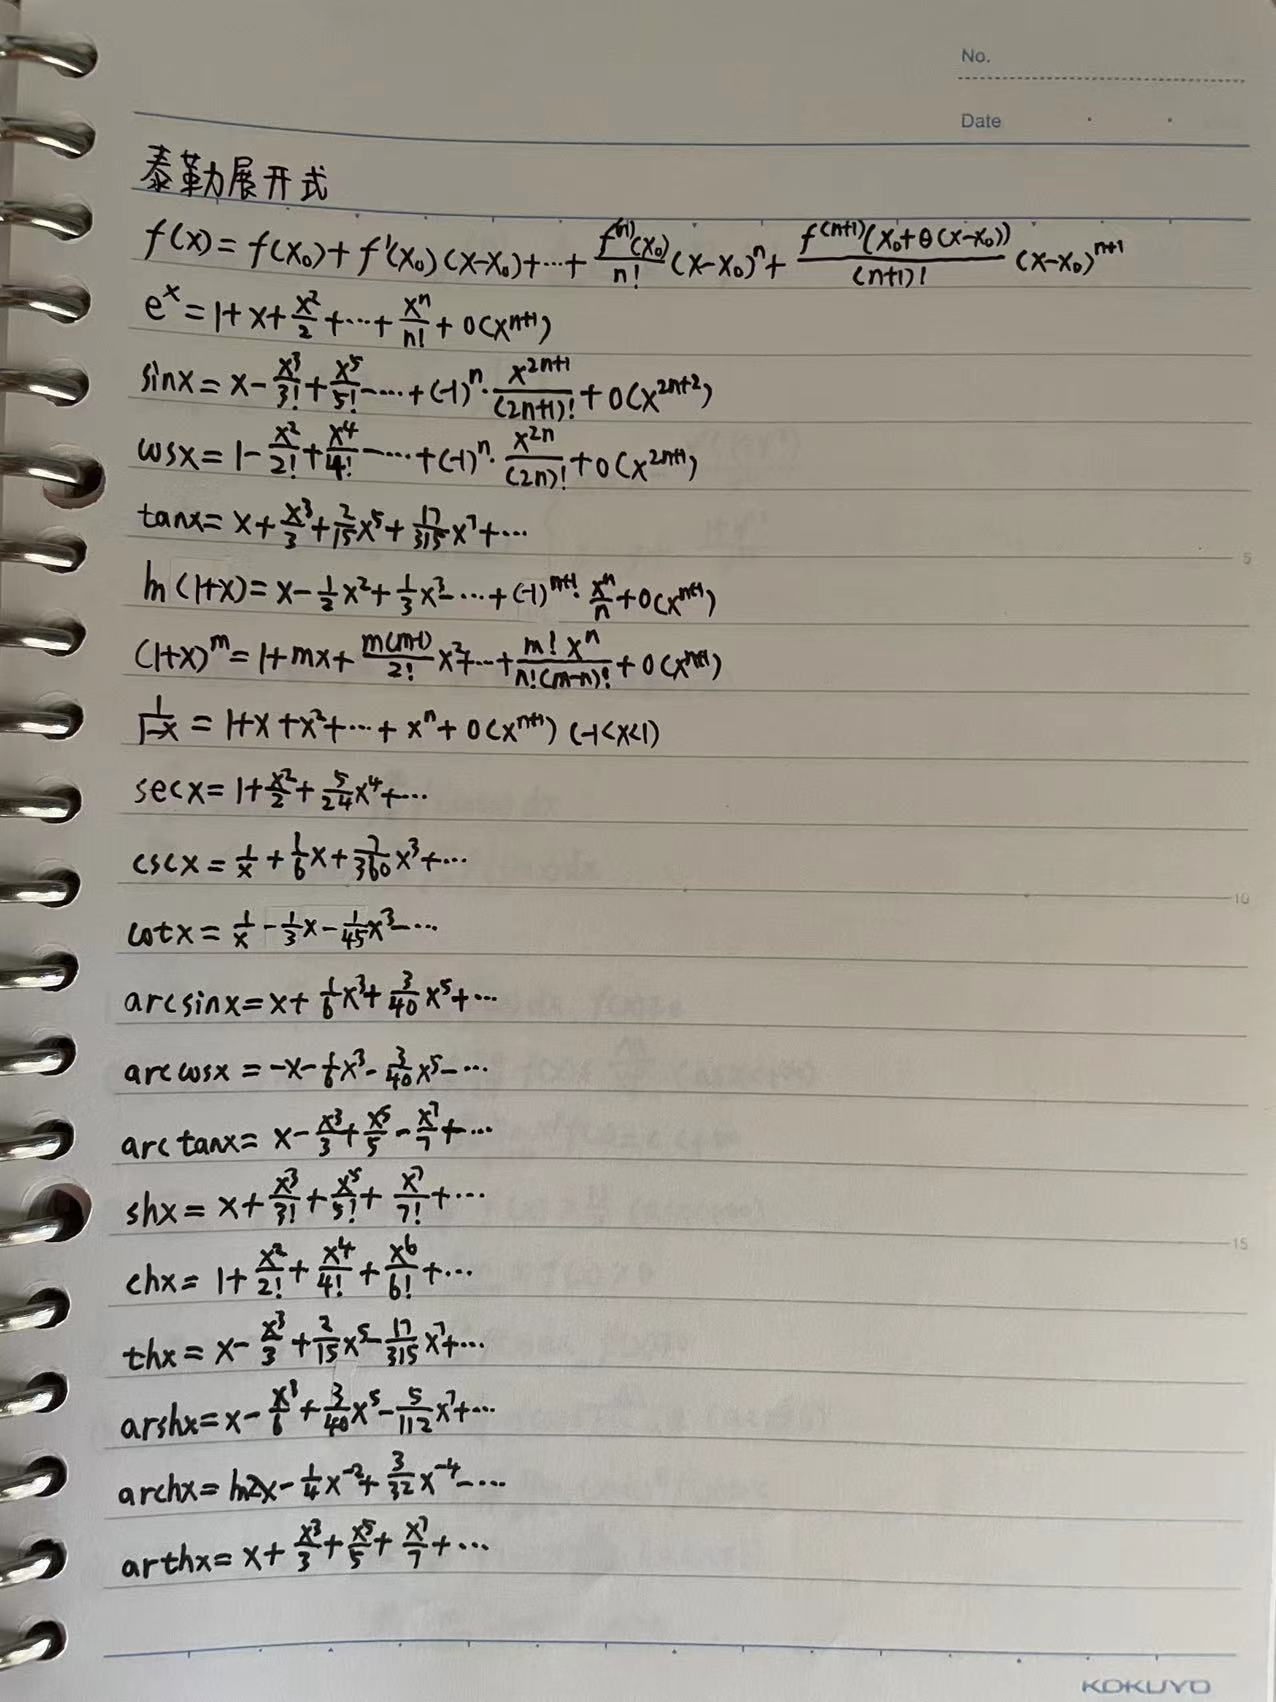 No.
Date
泰勒展开式
f(x) = f(x₀) + f'(x₀)(x-x₀) + ⋯ + \frac{f^{(n)}(x₀)}{n!}(x-x₀)^n + \frac{f^{(n+1)}(x₀+θ(x-x₀))}{(n+1)!}(x-x₀)^{n+1}
e^x = 1 + x + \frac{x^2}{2} + ⋯ + \frac{x^n}{n!} + o(x^{n+1})
sinx = x - \frac{x^3}{3!} + \frac{x^5}{5!} - ⋯ + (-1)^n · \frac{x^{2n+1}}{(2n+1)!} + o(x^{2n+2})
cosx = 1 - \frac{x^2}{2!} + \frac{x^4}{4!} - ⋯ + (-1)^n · \frac{x^{2n}}{(2n)!} + o(x^{2n+1})
tanx = x + \frac{x^3}{3} + \frac{2}{15}x^5 + \frac{17}{315}x^7 + ⋯
5
ln(1+x) = x - \frac{1}{2}x^2 + \frac{1}{3}x^3 - ⋯ + (-1)^{n+1} · \frac{x^n}{n} + o(x^{n+1})
(1+x)^m = 1 + mx + \frac{m(m-1)}{2!}x^2 + ⋯ + \frac{m! x^n}{n!(m-n)!} + o(x^{n+1})
\frac{1}{1-x} = 1 + x + x^2 + ⋯ + x^n + o(x^{n+1}) (-1<x<1)
secx = 1 + \frac{x^2}{2} + \frac{5}{24}x^4 + ⋯
cscx = \frac{1}{x} + \frac{1}{6}x + \frac{7}{360}x^3 + ⋯
10
cotx = \frac{1}{x} - \frac{1}{3}x - \frac{1}{45}x^3 - ⋯
arcsinx = x + \frac{1}{6}x^3 + \frac{3}{40}x^5 + ⋯
arccosx = -x - \frac{1}{6}x^3 - \frac{3}{40}x^5 - ⋯
arctanx = x - \frac{x^3}{3} + \frac{x^5}{5} - \frac{x^7}{7} + ⋯
shx = x + \frac{x^3}{3!} + \frac{x^5}{5!} + \frac{x^7}{7!} + ⋯
15
chx = 1 + \frac{x^2}{2!} + \frac{x^4}{4!} + \frac{x^6}{6!} + ⋯
thx = x - \frac{x^3}{3} + \frac{2}{15}x^5 - \frac{17}{315}x^7 + ⋯
arshx = x - \frac{x^3}{6} + \frac{3}{40}x^5 - \frac{5}{112}x^7 + ⋯
archx = ln2x - \frac{1}{4}x^{-2} + \frac{3}{32}x^{-4} - ⋯
arthx = x + \frac{x^3}{3} + \frac{x^5}{5} + \frac{x^7}{7} + ⋯
KOKUYO